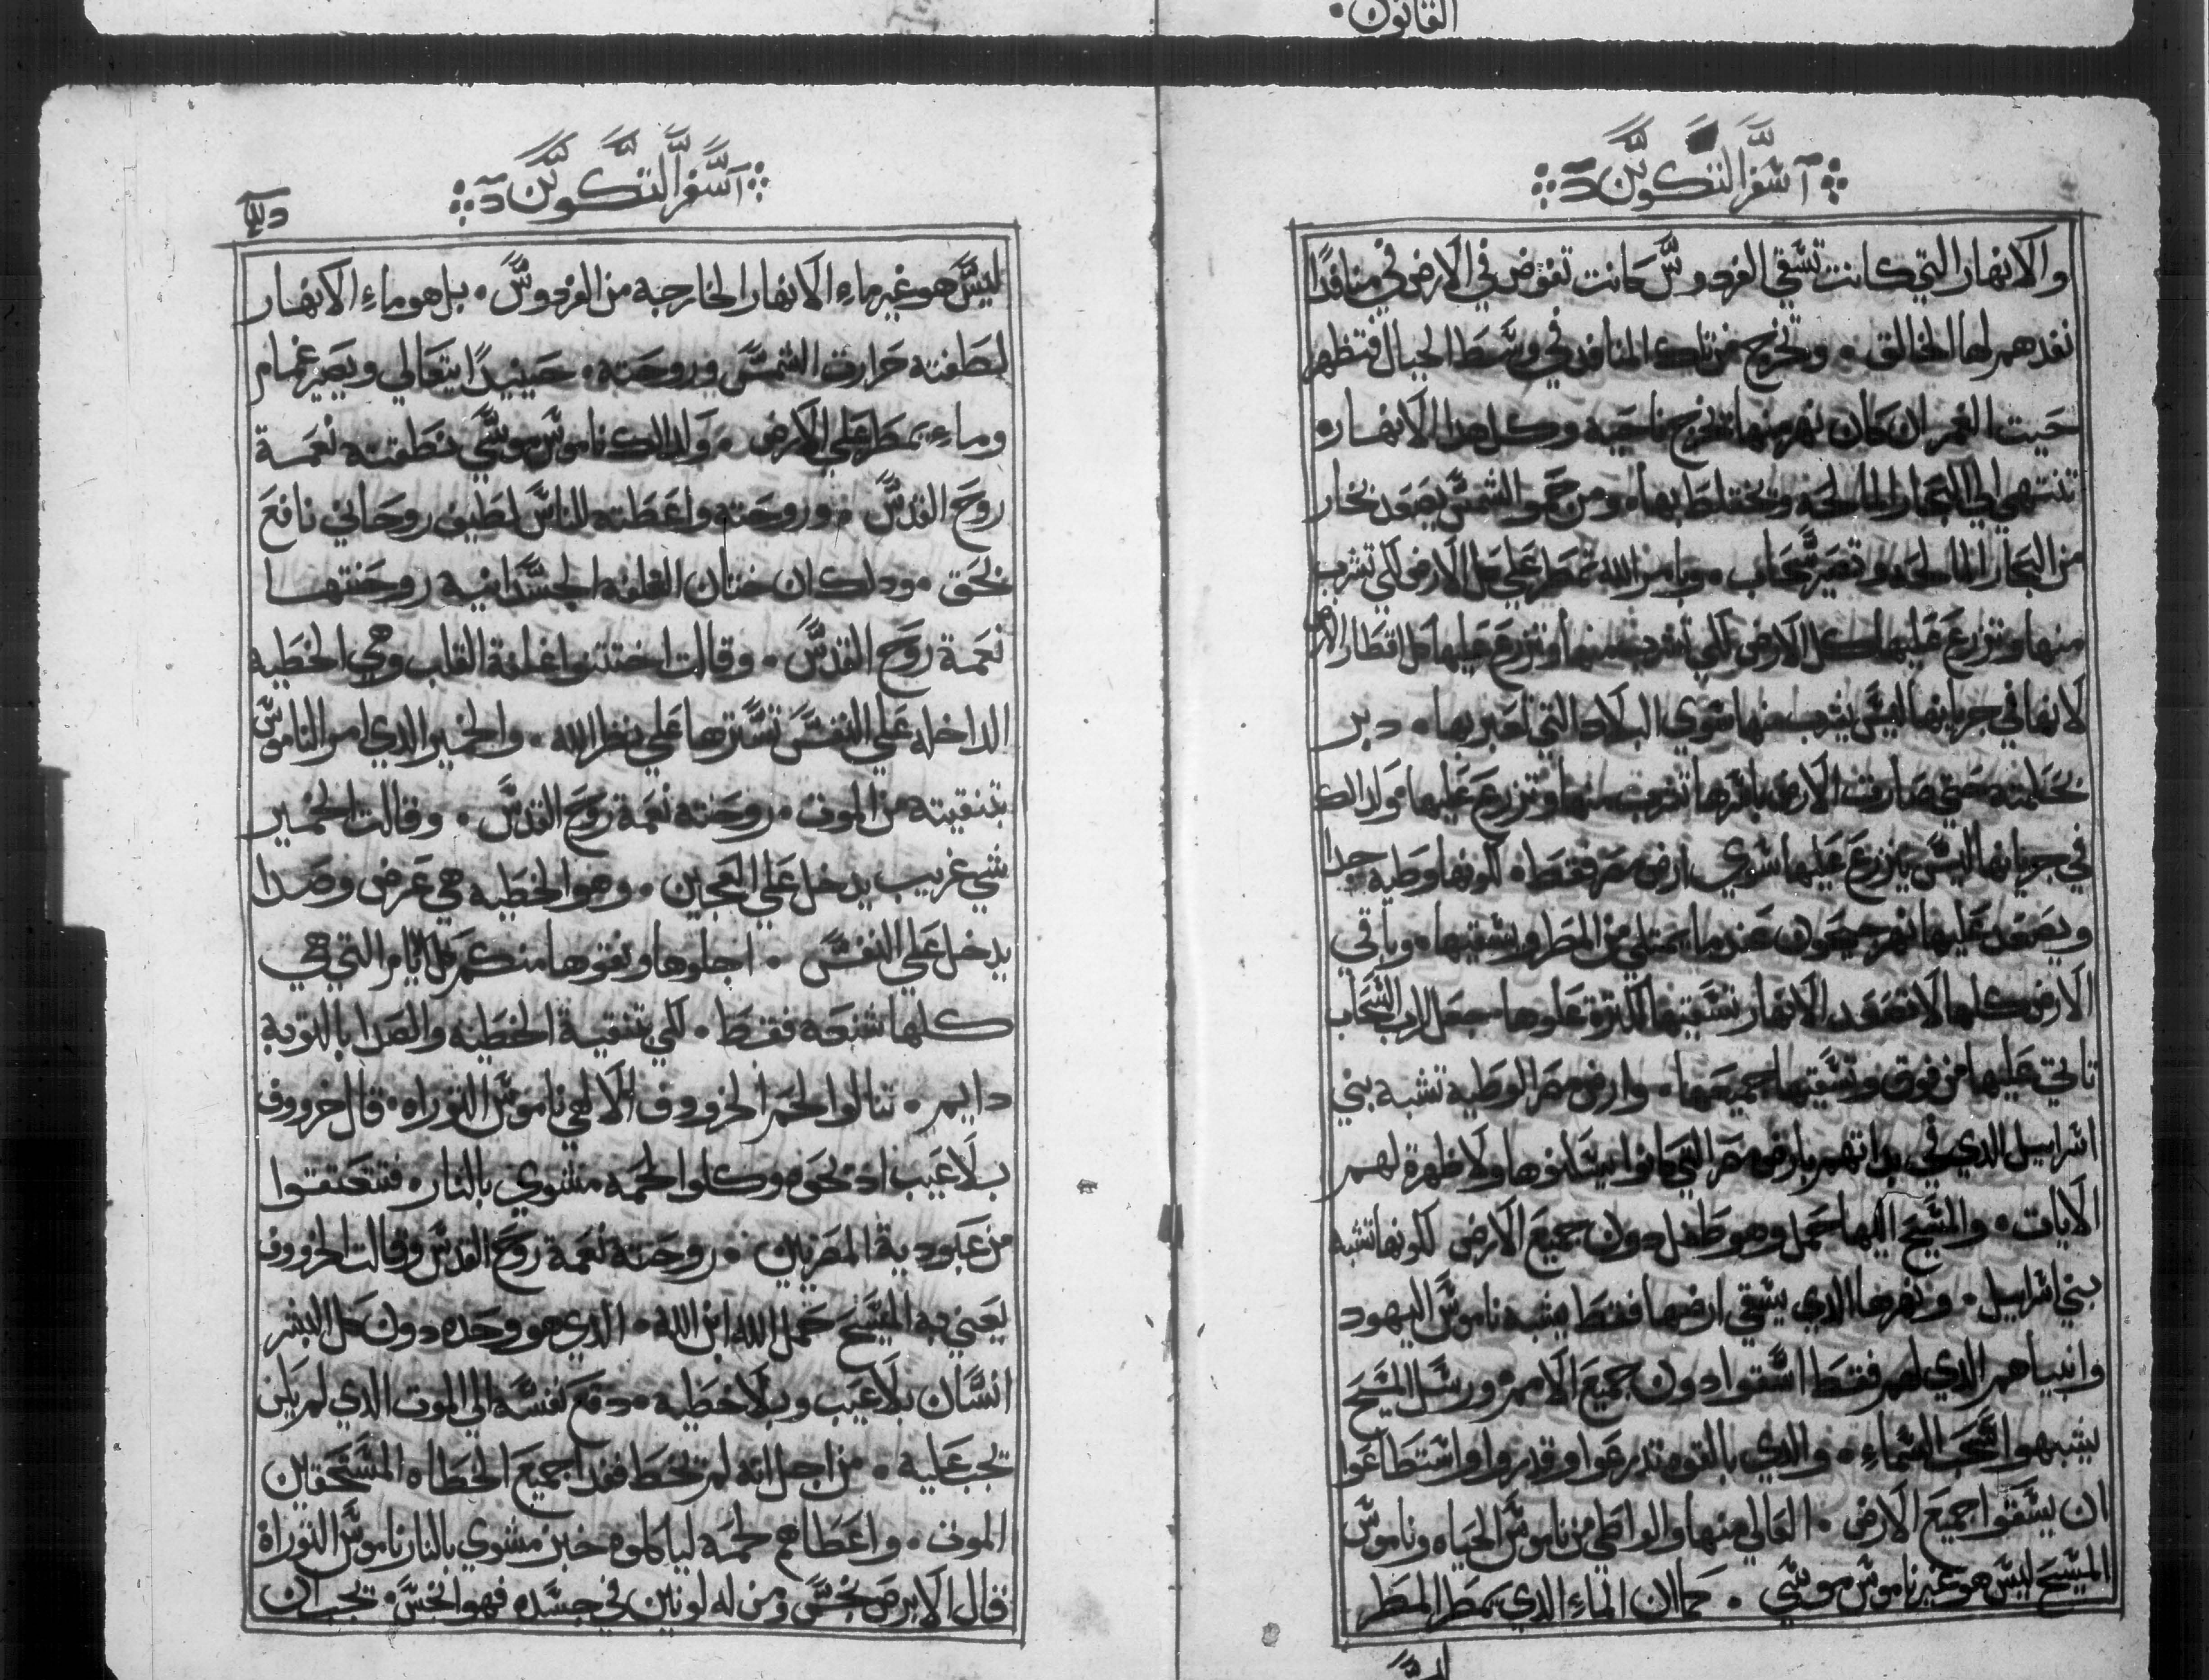 القانون
اسفر التكوين
والانهار التي كانت تسقي الفردوس كانت تغوض في الارض في منافدا
نفدهم لها الخالق. وتخرج من تلك المنافد في وسط الجبال فتظهر
حيت العمران كان نهر منها تخرج ناحيه وكل هدا الانهاره
تنتهي الي البحار المالحه وتختلط بها. ومن حموا الشمس يصعد بخار
من البحار المالحه وتصير سحاب. ويامر الله تمطر علي كل الارض لكي تشرب
منها وتزرع عليها كل الارض لكي تشرب منها وتزرع عليها كل اقطار الارض
لانها في جريانها ليس يشرب منها سوي البلاد التي تعبر بها. دبر
بحكمته حتي صارت الارض باسرها تشرب منها وتزرع عليها ولدالك
في جريانها ليس يزرع عليها سوي ارض مصر فقط. لكونها وطيه جدا
ويصعد عليها نهر جيحون عندما يمتلي من المطر ويسقيها. وباقي
الارض كلها لا تصعد الانهار تسقيها لكترة علوها. جعل الرب السحاب
تاتي عليها من فوق وتسقيها جميعها. وارض مصر الوطيه تشبه بني
اسراييل الدي في بداتهم بارض مصر التي كانوا يسكنوها ولا ظهرة لهم
الايات. والمسيح اليها حمل وهو طفل دون جميع الارض لكونها تشبه
بني اسراييل. ونهرها الدي يسقي ارضها فقط يشبه ناموس اليهود
وانبياهم الدي لهم فقط اسقوا دون جميع الامم. ورسل المسيح
يشبهوا سحب السماء. والدي بالقوه تدرعوا وقدروا واستطاعوا
ان يسقوا جميع الارض. العالي منها والواطي من ناموس الحياه وناموس
المسيح ليس هو غير ناموس موسي. كما ان الماء الدي يمطر المطر
اسفر التكوين
ليس هو غير ماء الانهار الخارجه من الفردوس. بل هو ماء الانهار
لطفته حرارة الشمس وروحته. حينيدا يتعالي ويصير غمام
وماء يمطر علي الارض. ولدالك ناموس موسي لطفته نعمة
روح القدس. وروحته واعطته للناس لطيف روحاني نافع
بحق. ودلك ان ختان الغلفه الجسدانيه روحنتها
نعمة روح القدس. وقالت اختتنوا غلفة القلب وهي الخطيه
الداخله علي النفس تسترها علي نظر الله. والخمير الدي امر الناموس
بتنقيته من الموت. روحنته نعمة روح القدس. وقالت الخمير
شي غريب يدخل علي العجين. وهو الخطيه هي عرض وصدا
يدخل علي النفس. اجلوها ونقوها منكم كل ايام التي هي
كلها سبعه فقط. لكي تنقية الخطيه والصدا بالتوبه
دايم. تنالوا لحم الخروف الالهي ناموس التوراه. قال خروف
بلا عيب ادبحوه وكلوا لحمه مشوي بالنار. فتنعتقوا
من عبودية المصريين. روحنته نعمة روح القدس وقالت الخروف
يعني به المسيح حمل الله ابن الله. الدي هو وحده دون كل البشر
انسان بلا عيب وبلا خطيه. دفع نفسه الي الموت الدي لم يكن
تجب عليه. من اجل انه لم تخط ففدا جميع الخطاه المستحقين
الموت. واعطاهم لحمه لياكلوه خبز مشوي بالنار ناموس التوراة
قال الابرص نجس ومن له لونين في جسده فهو انجس. تجب ان